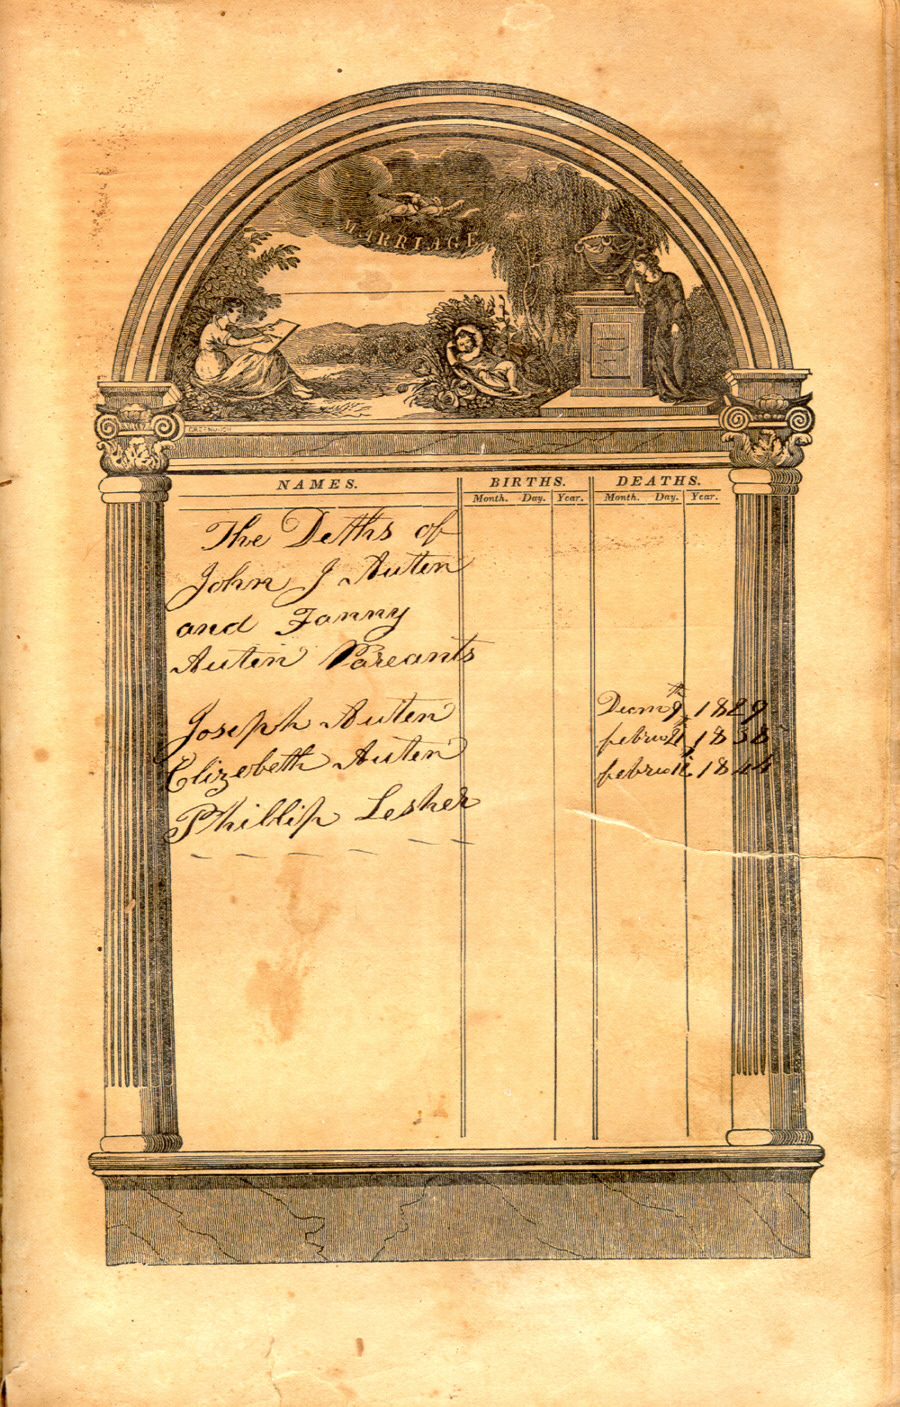 MARRIAGE
NAMES. BIRTHS. DEATHS.
Month. Day. Year. Month. Day. Year.
The Deths of
John J Auten
and Fanny
Auten Pareants
Joseph Auten Decm 9th 1829
Elizebeth Auten febru 1838
Phillip Lesher febru 1844